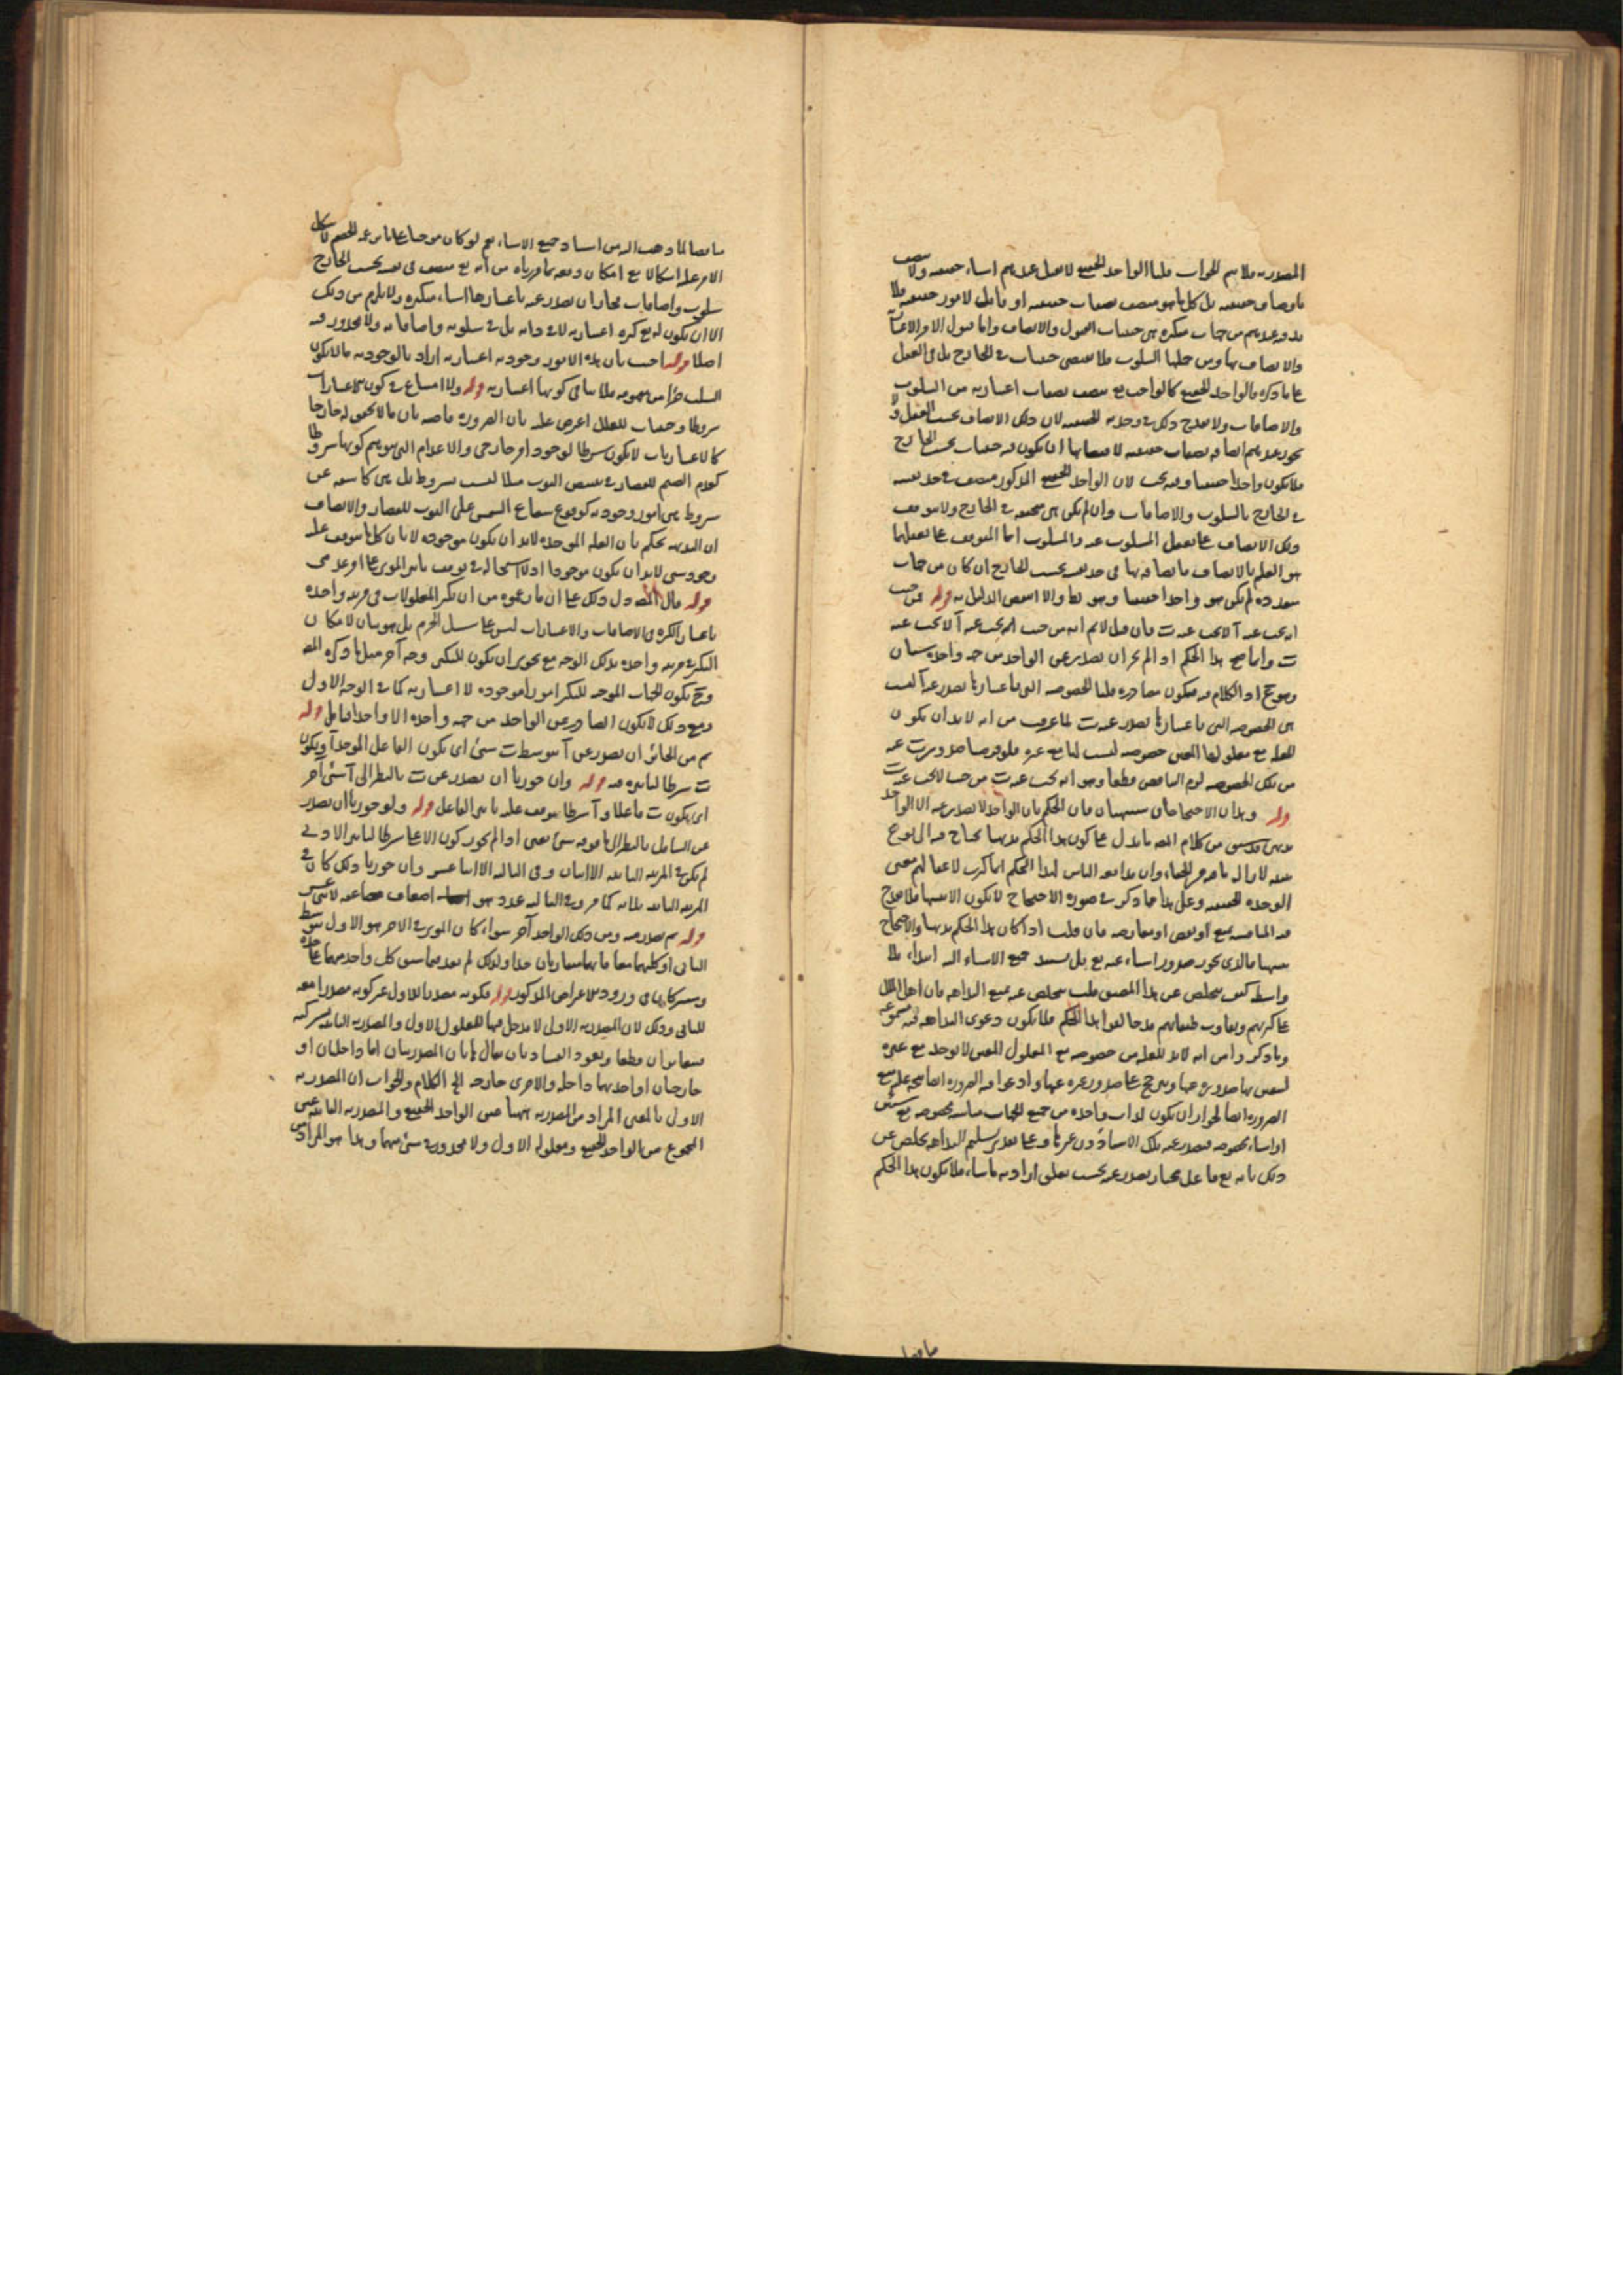 المصدرية فلا يتم الجواب قلنا الواحد الحقيقي لا يصدر عندهم اشياء حقيقية ولا يتصف
باوصاف حقيقية بل كل ما هو متصف بصفات حقيقية او قابل لامور حقيقية فلا
بد وعندهم من جهات متكثرة هي حيثيات القبول والاتصاف واما قبول الامور الاعتبارية
والاتصاف بها ومن جملتها السلوب فلا يقتضي حيثيات في الخارج بل في العقل
على ما ذكره فالواحد الحقيقي كالواجب تع متصف بصفات اعتبارية من السلوب
والاضافات ولا يقدح ذلك في وحدته الحقيقية لان ذلك الاتصاف بحسب العقل ولا
يجوز عندهم اتصافه بصفات حقيقية لاقتضائها ان يكون فيه حيثيات بحسب الخارج
فلا يكون واحدا حقيقيا وفيه بحث لان الواحد الحقيقي المذكور متصف في حد نفسه
في الخارج بالسلوب والاضافات وان لم يكن هي متحققة في الخارج ولا يتوقف
ذلك الاتصاف على تعقل المسلوب عنه والمسلوب انما المتوقف على تعقلهما
هو العلم بالاتصاف فاتصافه بها في حد نفسه بحسب الخارج ان كان من جهات
متعددة لم يكن هو واحدا حقيقيا وهو بط والا انتقض الدليل به قوله فمن حيث
انه يجب عنه آ لا يجب عنه ت فان قيل لا نم انه من حيث انه يجب عنه آ لا يجب عنه
ت وانما يصح هذا الحكم اذا لم يجز ان يصدر عن الواحد من جهة واحدة شيئان
وهو مح اذ الكلام فيه فيكون مصادرة قلنا الخصوصية التي باعتبارها يصدر عنه آ ليست
هي الخصوصية التي باعتبارها يصدر عنه ت لما عرفت من انه لابد ان يكون
للعلة مع معلولها المعين خصوصية ليست لها مع غيره فلو فرضنا صدور ت عنه
من تلك الخصوصية لزم التناقض قطعا وهو انه يجب عنه ت من حيث لا يجب عنه ت
قوله وهذان الاحتجاجان تنبيهان فان الحكم بان الواحد لا يصدر عنه الا الواحد
بديهي قد سبق من كلام المص ما يدل على كون هذا الحكم بديهيا يحتاج فيه الى نوع
تنبيه لازالة ما فيه من الخفاء وان مدافعة الناس لهذا الحكم انما كثرت لاغفالهم معنى
الوحدة الحقيقية وعلى هذا فما ذكر في صورة الاحتجاج لا يكون الا تنبيها فلا يقدح
فيه المناقشة بمنع او نقض او معارضة فان قلت اذا كان هذا الحكم بديهيا والاحتجاج
تنبيها فالذي يجوز صدور اشياء عنه تع بل يسند جميع الاشياء اليه ابتداء بلا
واسطة كيف يتخلص عن هذا المضيق قلت يتخلص عنه بمنع البداهة فان اهل الملل
على كثرتهم وتفاوت طبقاتهم قد خالفوا هذا الحكم فلا يكون دعوى البداهة فيه مسموعة
وما ذكر من انه لابد للعلة من خصوصية مع المعلول المعين لا يوجد مع غيره
يقتضي بها صدوره عنها ويترجح على صدور غيره عنها وادعوا فيه الضرورة ايضا يتجه عليه منع
الضرورة ايضا لجواز ان يكون لذات واحدة من جميع الجهات مناسبة مخصوصة مع شيئين
او اشياء مخصوصة فيصدر عنه تلك الاشياء دون غيرها وعلى تقدير تسليم البداهة يتخلص عن
ذلك بانه تع فاعل مختار يصدر عنه بحسب تعلق ارادته ما شاء فلا يكون هذا الحكم
منافيا لما ذهب اليه من اسناد جميع الاشياء نعم لو كان موجبا على ما يزعمه الخصم لاشكل
الامر عليه اشكالا مع امكان دفعه بما قررناه من انه تع متصف في نفسه بحسب الخارج
بسلوب واضافات فجاز ان يصدر عنه باعتبارها اشياء متكثرة ولا يلزم من ذلك
الا ان يكون له تع كثرة اعتبارية لا في ذاته بل في سلوبه واضافاته ولا محذور فيه
اصلا قوله اجيب بان هذه الامور وجودية اعتبارية اراد بالوجودية ما لا يكون
السلب جزأ من مفهومه فلا ينافي كونها اعتبارية قوله ولا امتناع في كون الاعتباريات
شروطا وحيثيات للعلل اعترض عليه بان الضرورة قاضية بان ما لا تحقق له خارجا
كالاعتباريات لا يكون شرطا لوجود امر خارجي والاعدام التي يتوهم كونها شروطا
كعدم الغيم للقصار في تبييض الثوب مثلا ليست بشروط بل هي كاشفة عن
شروط هي امور وجودية كوقوع شعاع الشمس على الثوب للقصار والانصاف
ان البديهة يحكم بان العلة الموجدة لابد ان يكون موجودة لا بان كل ما يتوقف عليه
وجود شيء لابد ان يكون موجودا اذ لا استحالة في توقف تاثير الموثر على امر عدمي
قوله قال المص دل ذلك على ان ما ادعوه من ان تكثر المعلولات في مرتبة واحدة
باعتبار الكثرة في الاضافات والاعتبارات ليس على سبيل الجزم بل هو بيان لامكان
التكثر في مرتبة واحدة بذلك الوجه مع تجويز ان يكون للتكثر وجه آخر مثل ما ذكره المص
وح يكون الجهات الموجبة للتكثر امورا موجودة لا اعتبارية كما في الوجه الاول
ومع ذلك لا يكون الصادر عن الواحد من جهة واحدة الا واحدا فتامل قوله
ثم من الجائز ان يصدر عن آ بتوسط ت شيء اي يكون الفاعل الموجد آ ويكون
ت شرطا لتاثيره فيه قوله وان جوزنا ان يصدر عن ت بالنظر الى آ شيء آخر
اي يكون ت فاعلا و آ شرطا يتوقف عليه تاثير الفاعل قوله ولو جوزنا ان يصدر
عن السافل بالنظر الى ما فوقه شيء يعني اذا لم يجوز كون الاعلى شرطا لتاثير الادنى
لم يكن في المرتبة الثانية الا اثنان وفي الثالثة الا اثنا عشر وان جوزنا ذلك كان في
المرتبة الثانية ثلثة كما مر وفي الثالثة عدد هو اضعاف مضاعفة لاثني عشر
قوله ثم يصدر منه ومن ذلك الواحد آخر سواء كان الموثر في الاخر هو الاول بتوسط
الثاني او كليهما معا فانهما متقاربان جدا ولذلك لم يعد فيما سبق كل واحد منهما على حدة
ويشتركان في ورود الاعتراض المذكور قوله فكونه مصدرا للاول غير كونه مصدرا معه
للثاني وذلك لان المصدرية الاولى لا مدخل فيها للمعلول الاول والمصدرية الثانية بشركته
فيتغايران قطعا ويعود الفساد بان يقال ها تان المصدريتان اما داخلتان او
خارجتان او احديهما داخلة والاخرى خارجة الخ الكلام والجواب ان المصدرية
الاولى بالمعنى المراد من المصدرية ههنا عين الواحد الحقيقي والمصدرية الثانية عين
المجموع من الواحد الحقيقي ومعلوله الاول ولا محذور في شيء منهما وهذا هو المراد من
منافيا